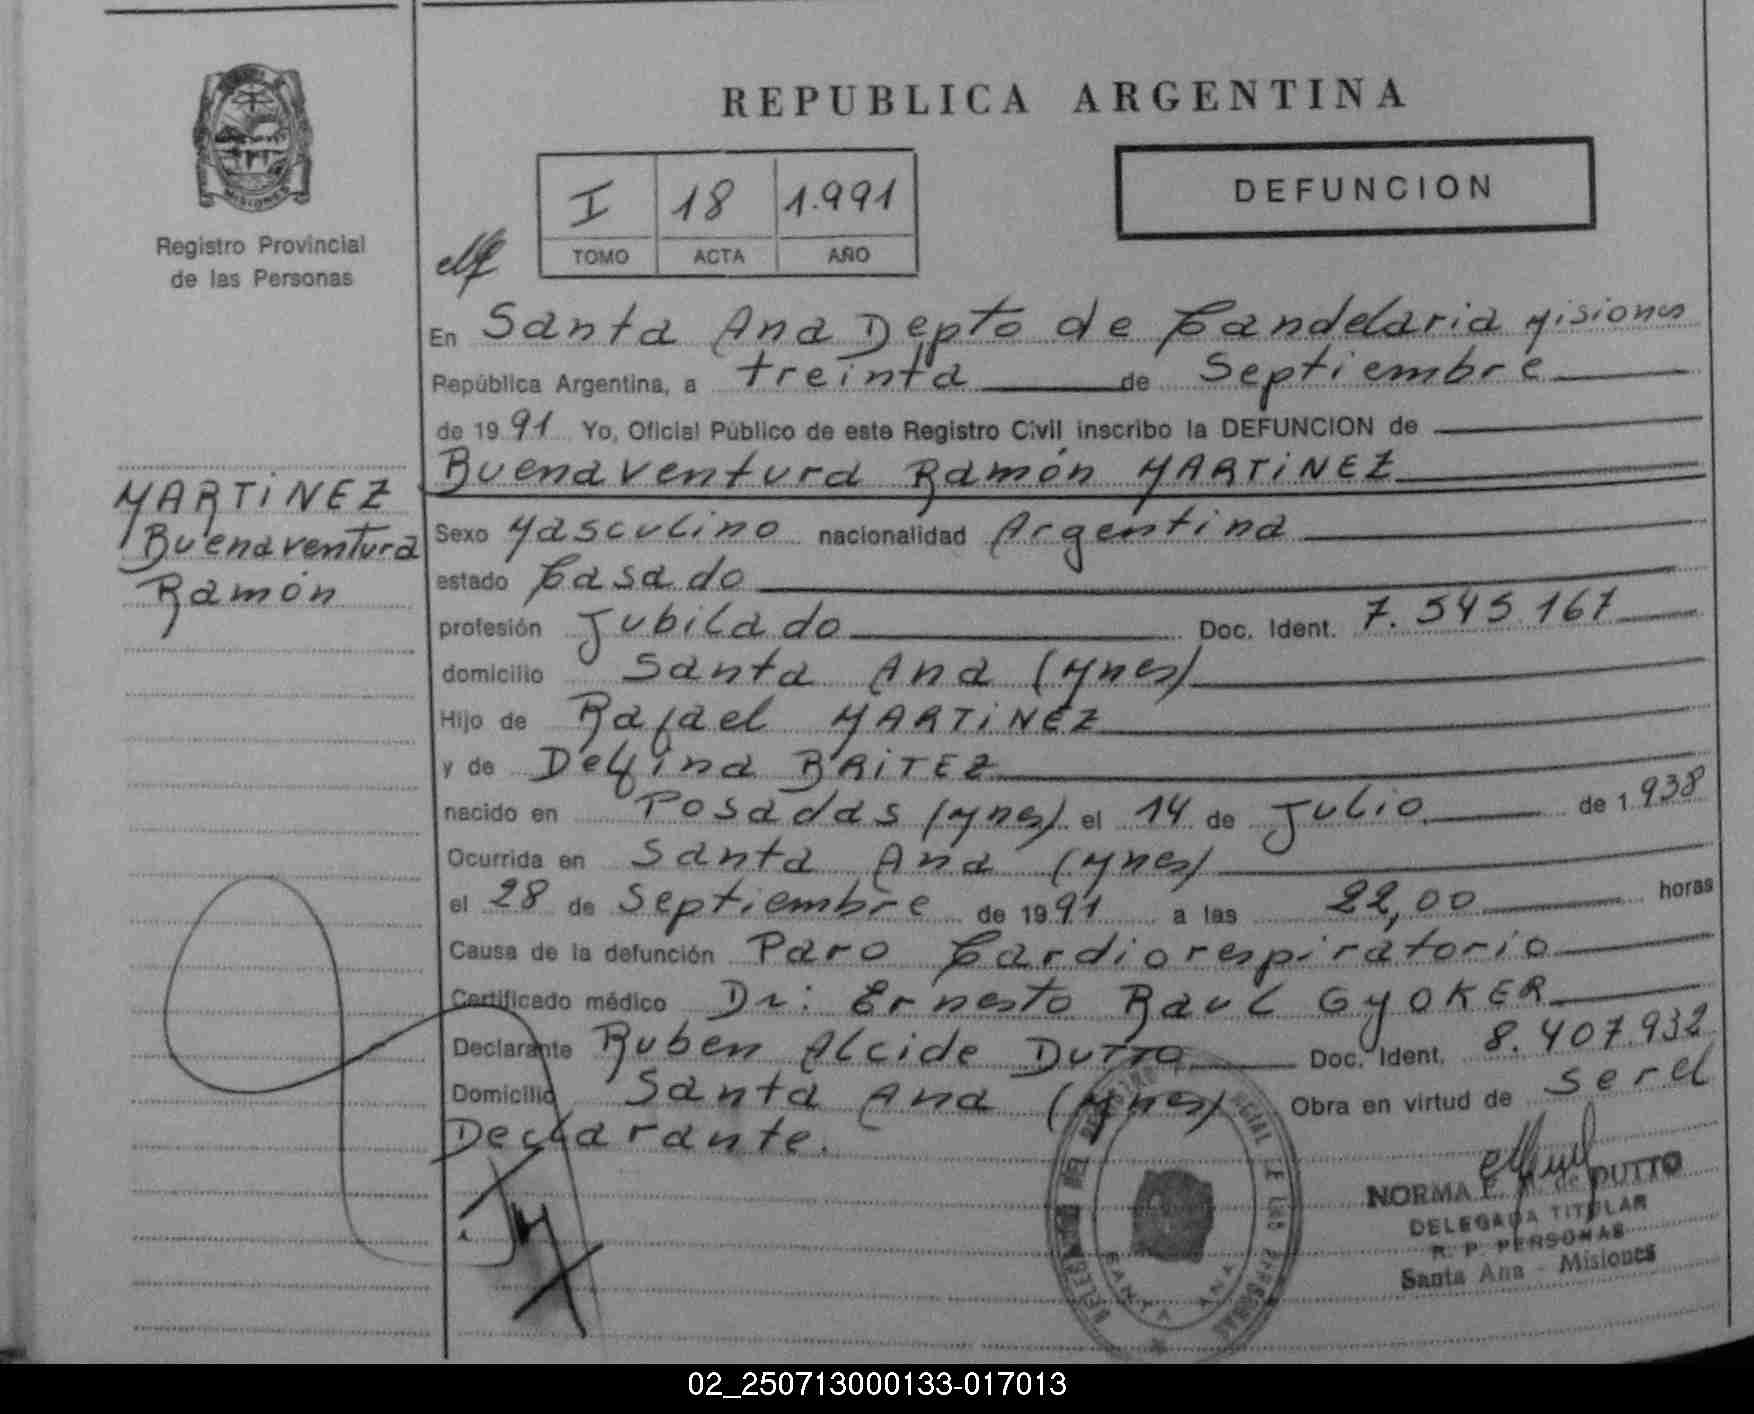 REPUBLICA ARGENTINA
MISIONES
Registro Provincial
de las Personas
I 18 1.991
TOMO ACTA AÑO
DEFUNCION
En Santa Ana Depto de Candelaria Misiones
República Argentina, a treinta de Septiembre
de 1991 Yo, Oficial Público de este Registro Civil inscribo la DEFUNCION de
Buenaventura Ramón MARTiNEZ
MARTiNEZ
Buenaventura
Ramón
Sexo Masculino nacionalidad Argentina
estado Casado
profesión Jubilado Doc. Ident. 7.545.167
domicilio Santa Ana (Mnes)
Hijo de Rafael MARTiNEZ
y de Delfina BRiTEZ
nacido en Posadas (Mnes) el 14 de Julio de 1938
Ocurrida en Santa Ana (Mnes)
el 28 de Septiembre de 1991 a las 22,00 horas
Causa de la defunción Paro Cardiorespiratorio
Certificado médico Dr: Ernesto Raul GyOKER
Declarante Ruben Alcide DuTTO Doc. Ident. 8.407.932
Domicilio Santa Ana (Mnes) Obra en virtud de ser el
Declarante.
NORMA de DUTTO
DELEGADA TITULAR
R. P. PERSONAS
Santa Ana - Misiones
SANTA ANA
02_250713000133-017013